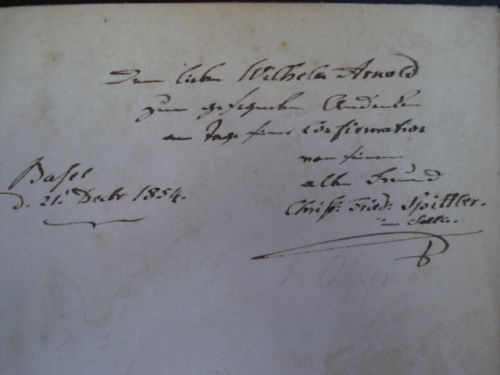 Dem lieben Wilhelm Arnold
zum gesegneten Andenken
am Tage seiner Confirmation
von seinem
alten Freund
Christ: Fried: Spittler.
Basel
d. 21. Decbr. 1854.